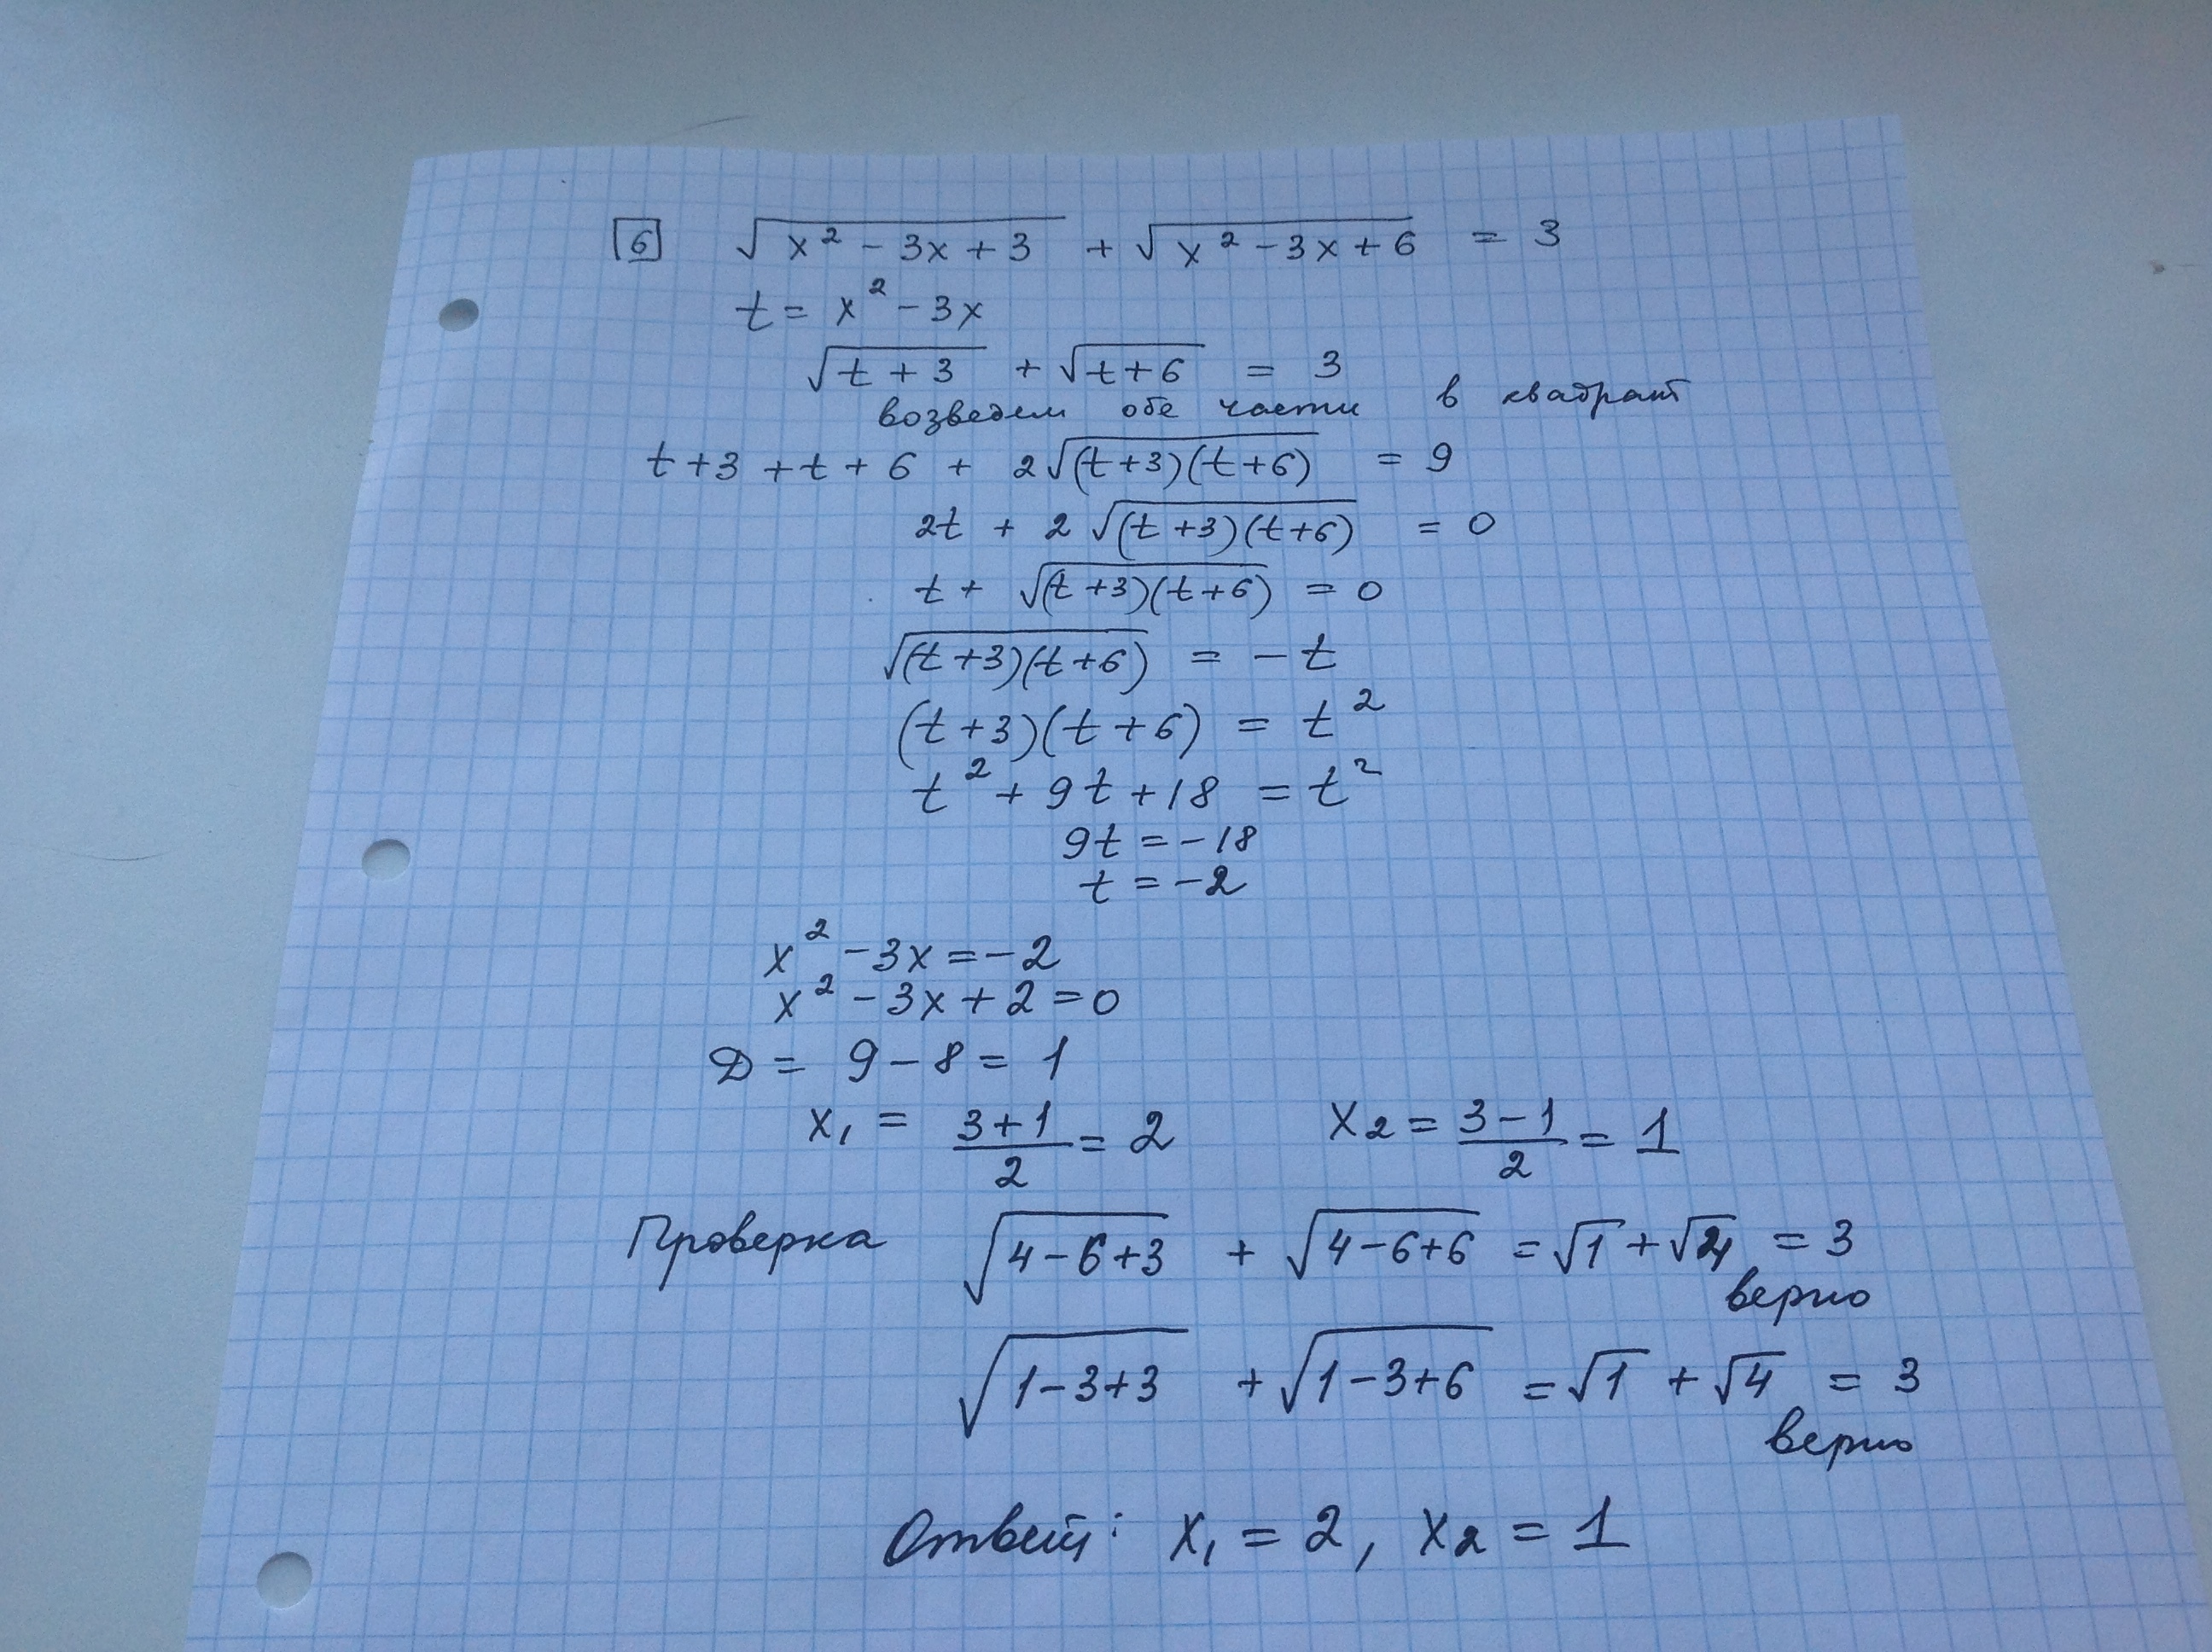 6 √(x² - 3x + 3) + √(x² - 3x + 6) = 3
t = x² - 3x
√(t + 3) + √(t + 6) = 3
возведем обе части в квадрат
t + 3 + t + 6 + 2√((t + 3)(t + 6)) = 9
2t + 2√((t + 3)(t + 6)) = 0
t + √((t + 3)(t + 6)) = 0
√((t + 3)(t + 6)) = - t
(t + 3)(t + 6) = t²
t² + 9t + 18 = t²
9t = - 18
t = - 2
x² - 3x = - 2
x² - 3x + 2 = 0
D = 9 - 8 = 1
x₁ = (3 + 1)/2 = 2 x₂ = (3 - 1)/2 = 1
Проверка √(4 - 6 + 3) + √(4 - 6 + 6) = √1 + √4 = 3
верно
√(1 - 3 + 3) + √(1 - 3 + 6) = √1 + √4 = 3
верно
Ответ: x₁ = 2, x₂ = 1